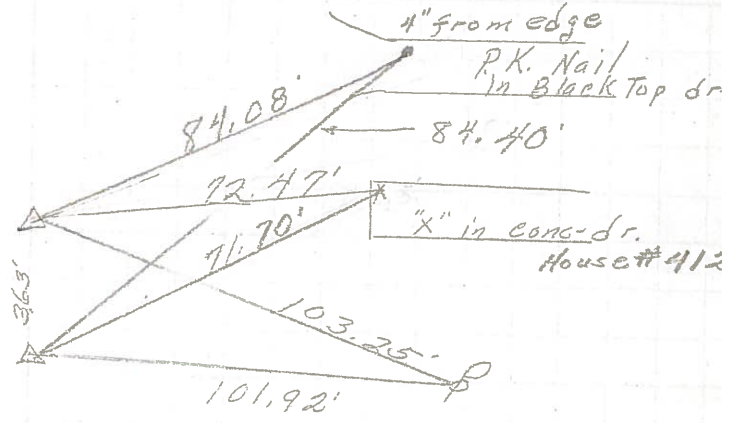 4" from edge
P.K. Nail
In Black Top dr
84.08'
84.40'
72.47'
71.70'
"X" in conc-dr.
House # 412
3.63'
103.25'
101.92'